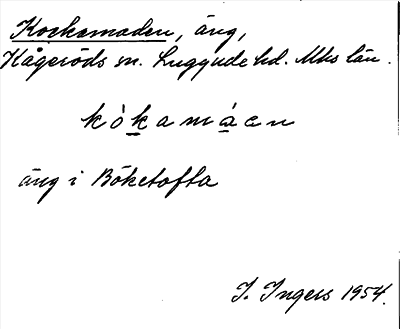 Kockamaden, äng,
Hågeröds sn. Luggude hd. Mhs län.
kókamáen
äng i Böketofta
I. Ingers 1954.